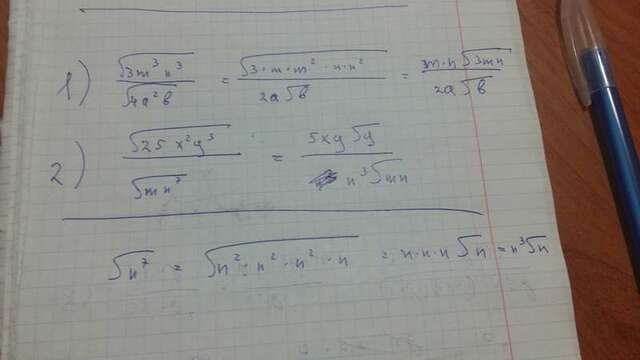 1) √(3m³n³) / √(4a²b) = √(3·m·m²·n·n²) / 2a√b = 3m·n√(3mn) / 2a√b
2) √(25x²y³) / √(mn⁷) = 5xy√y / n³√(mn)
√(n⁷) = √(n²·n²·n²·n) = n·n·n√n = n³√n